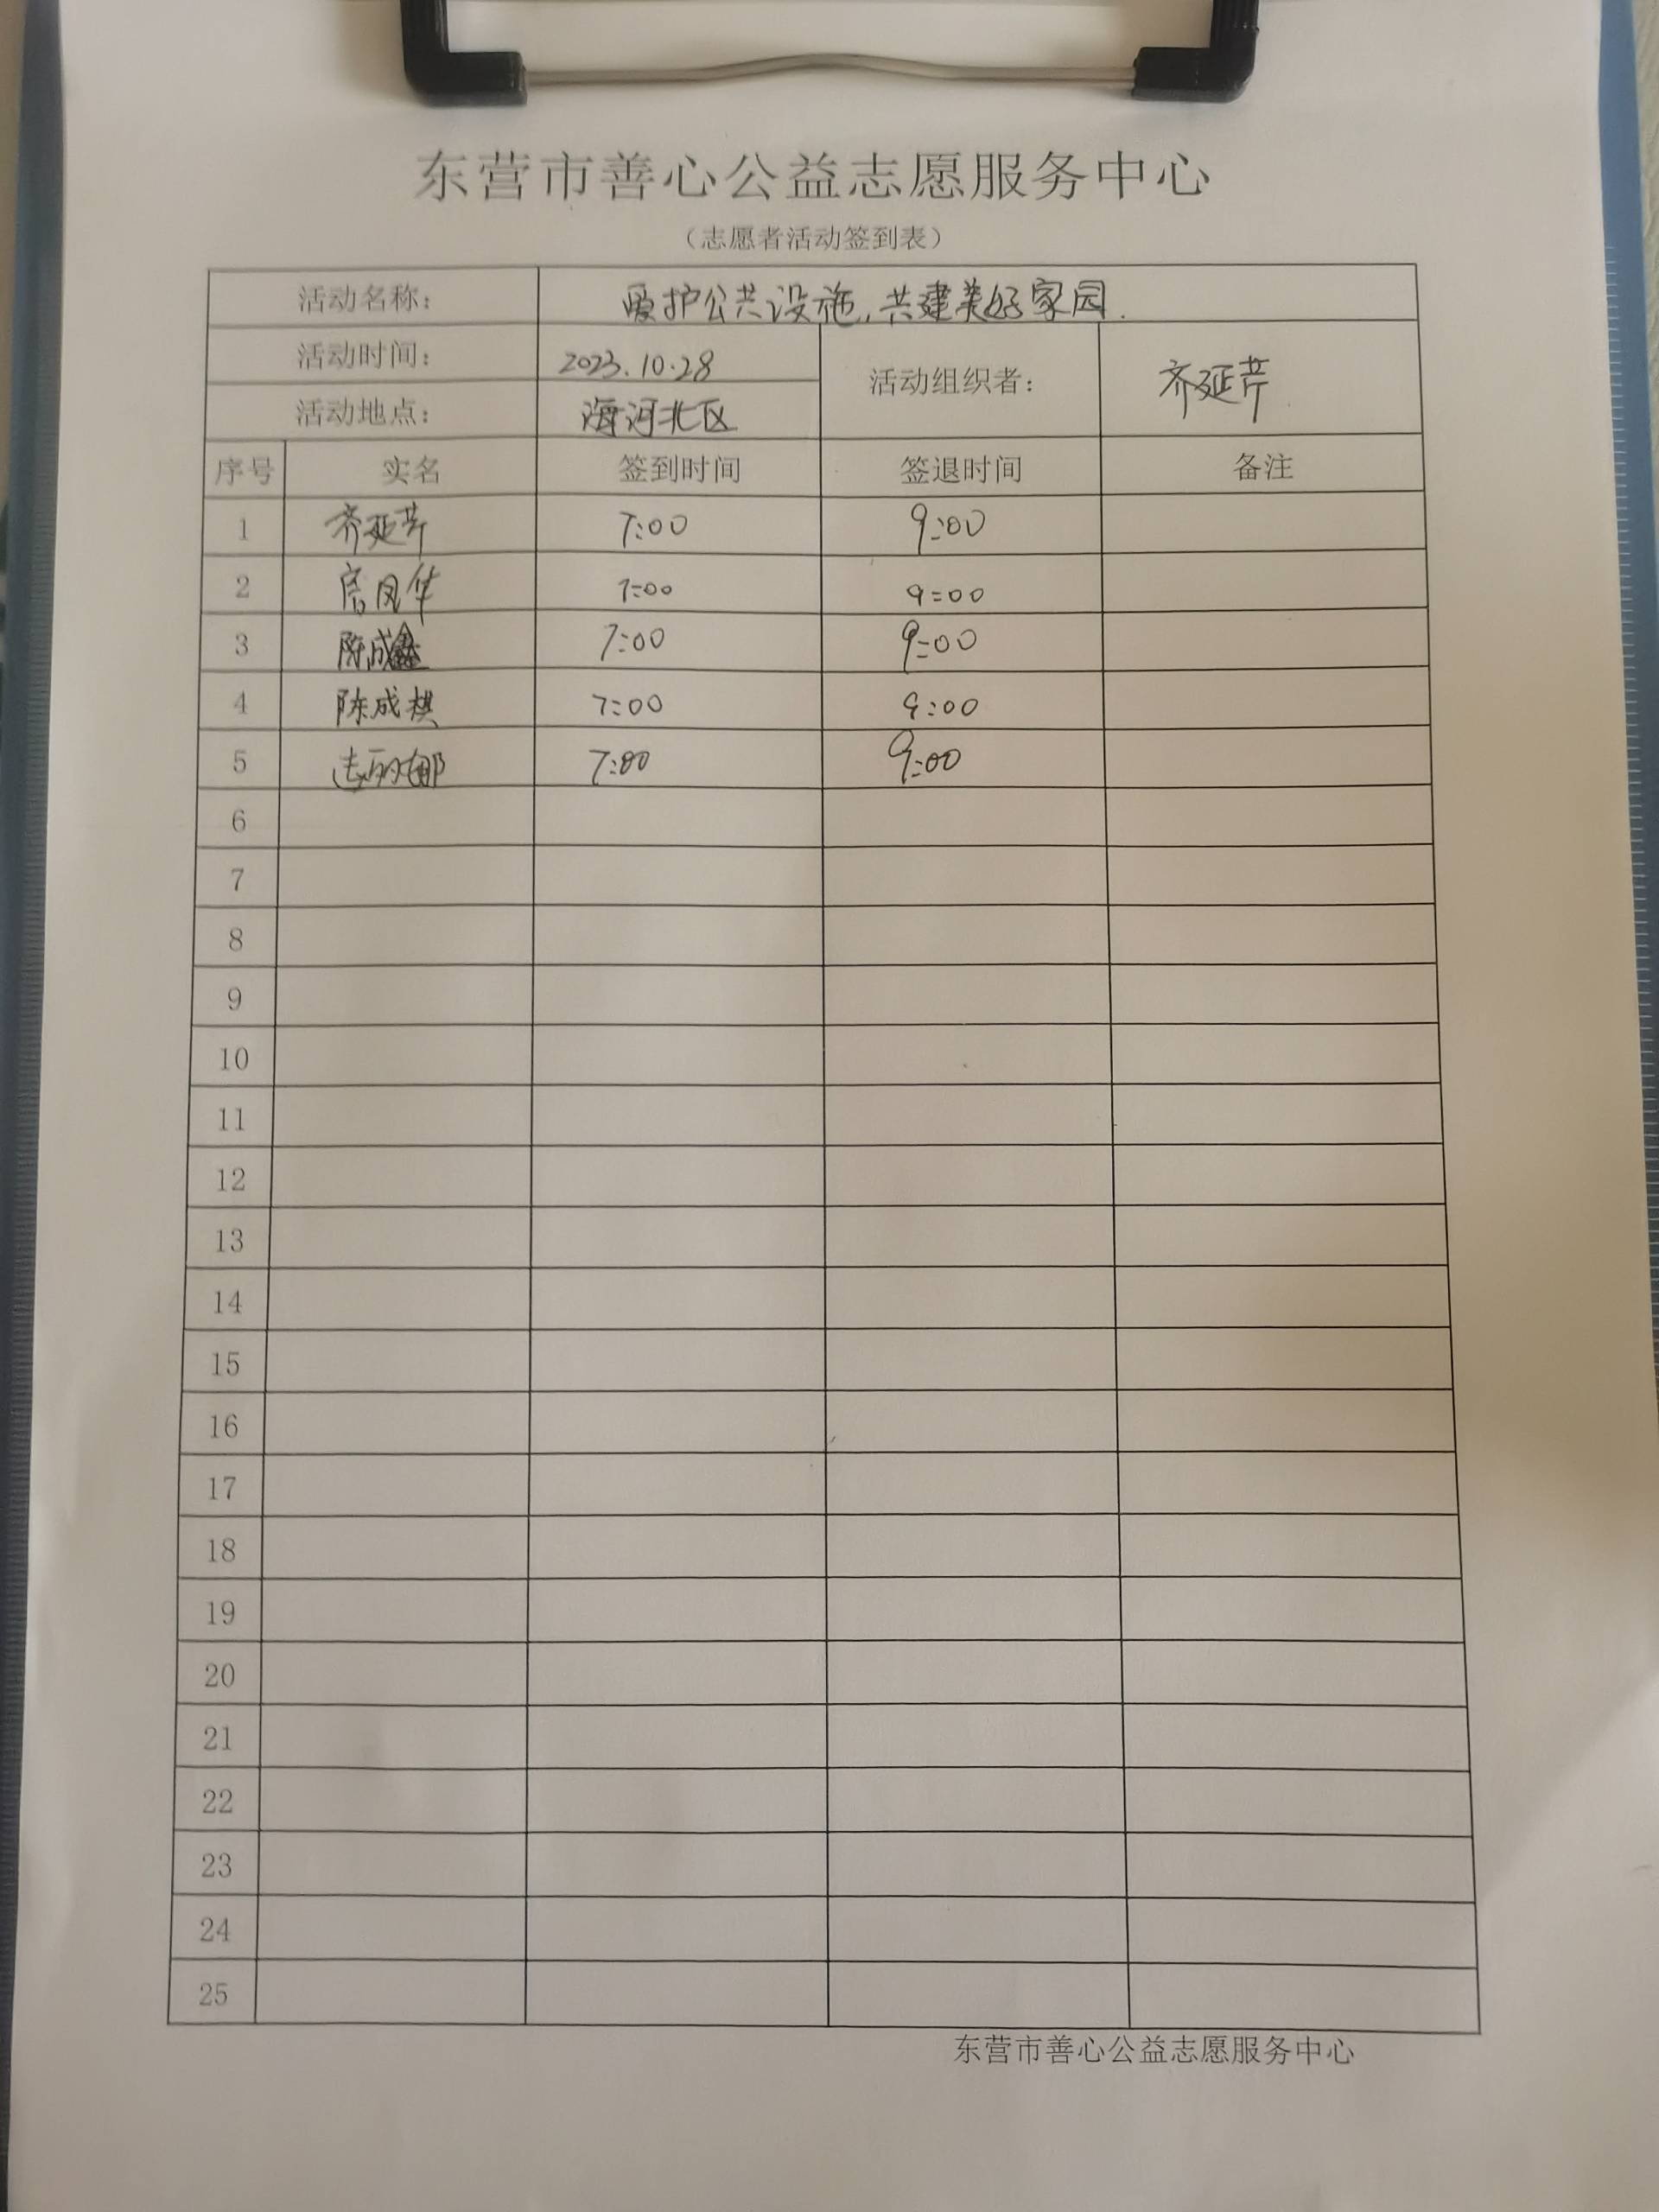 东营市善心公益志愿服务中心
（志愿者活动签到表）
活动名称： 爱护公共设施，共建美好家园.
活动时间： 2023.10.28 活动组织者： 齐延芹
活动地点： 海河北区
序号 实名 签到时间 签退时间 备注
1 齐延芹 7:00 9:00
2 凤华 7:00 9:00
3 陈成鑫 7:00 9:00
4 陈成棋 7:00 9:00
5 丽娜 7:00 9:00
6
7
8
9
10
11
12
13
14
15
16
17
18
19
20
21
22
23
24
25
东营市善心公益志愿服务中心